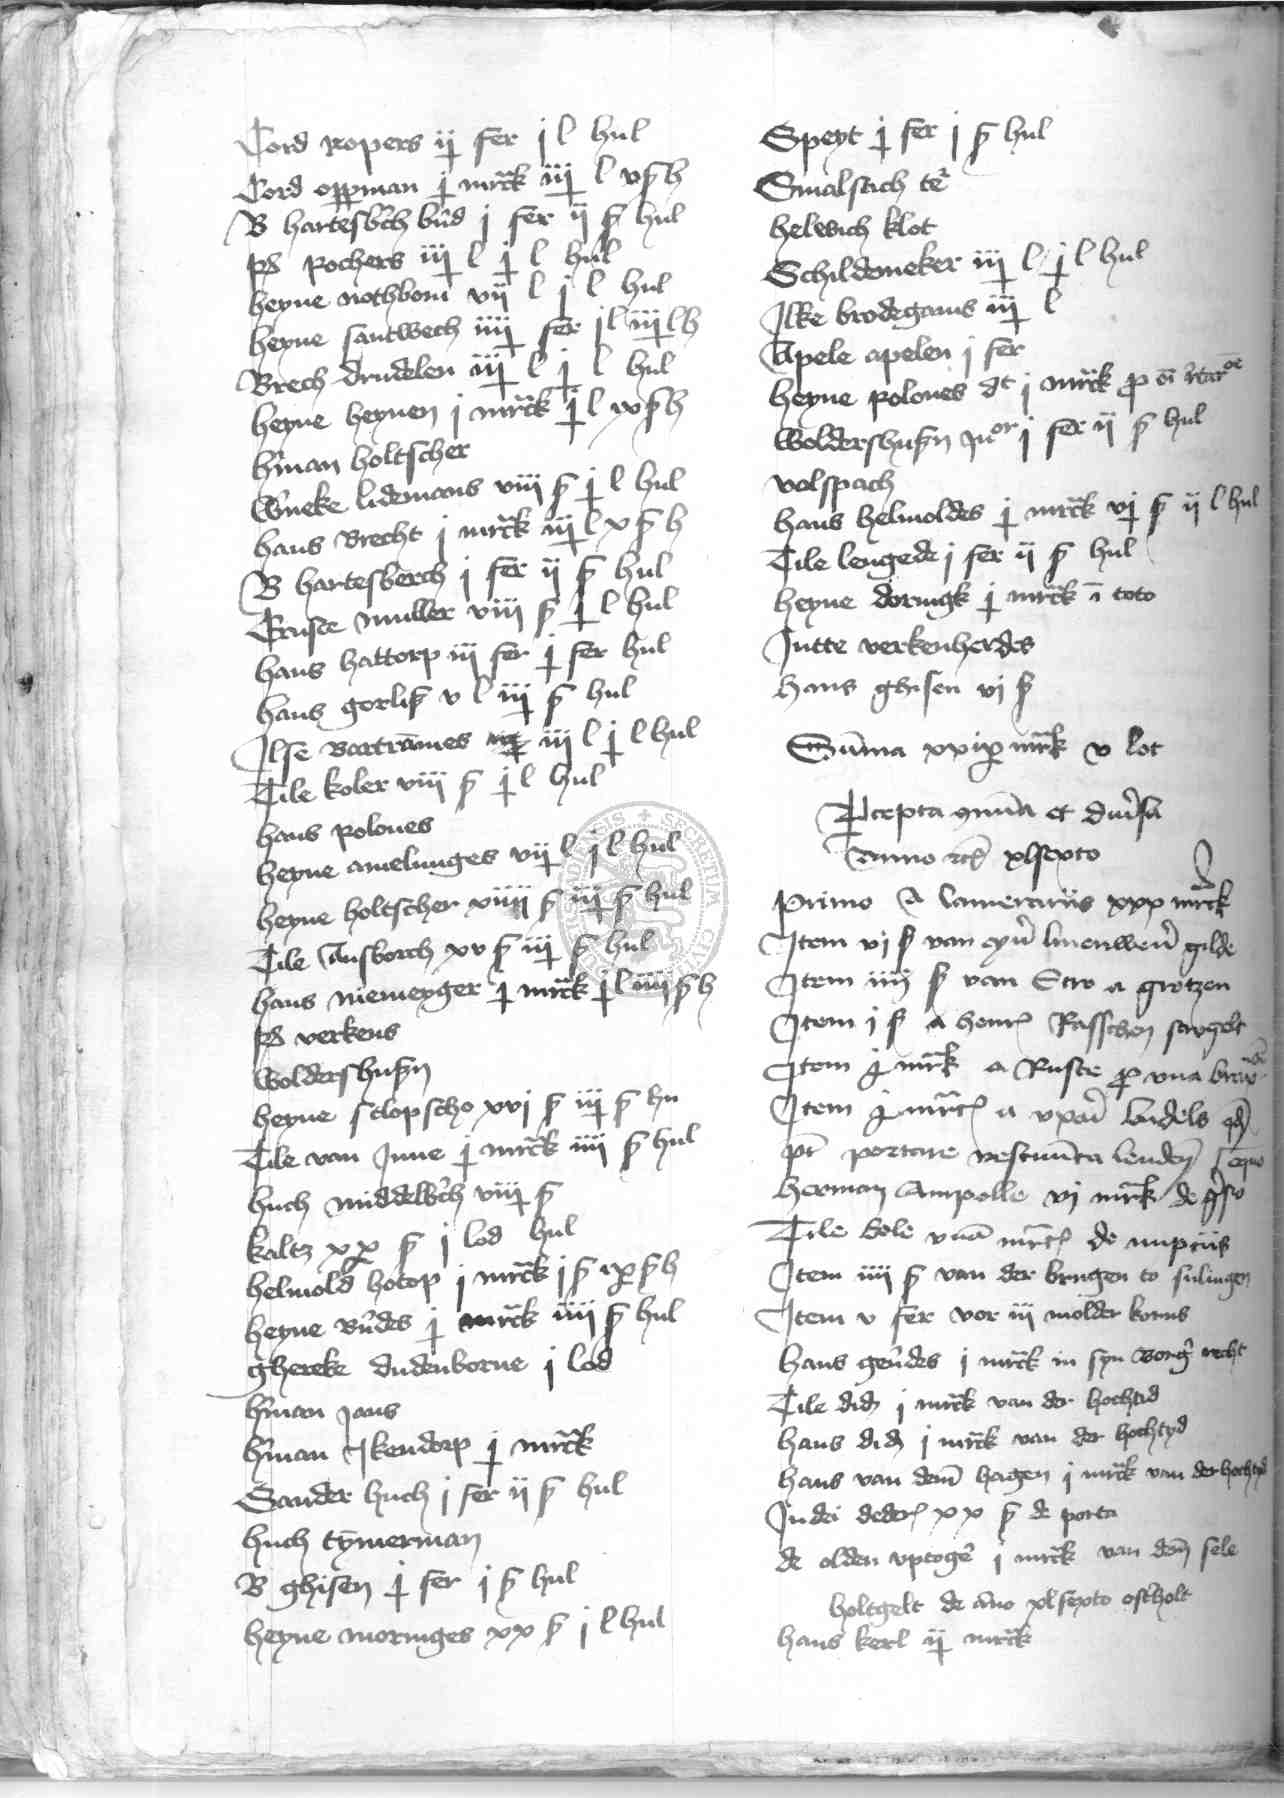 Cord ropers ij fer j l hul
Cord oppman j mrck iij l v ß h
B hartesbch bud j fer ij ß hul
rochers iij l j l hul
heyne nothbom vij l j l hul
heyne santwech iiij fer j l iij l h
Brech drudelen iij l j l hul
heyne heynen j mrck j l xv ß h
hman holtscher
Wneke lidemans viij ß j l hul
hans Brecht j mrck iij l x ß h
B hartesberch j fer ij ß hul
Cruse muller viij ß j l hul
hans hattorp iij fer j fer hul
hans gorliß v l iij ß hul
Ilse Bartrames iij l j l hul
Tile koler viij ß j l hul
hans roloues
heyne amelunges vij l j l hul
heyne holtscher xiiij ß iij ß hul
Tile Ausborch xv ß iij ß hul
hans niemeyger j mrck j l iiij ß h
verkens
woldershußn
heyne sclopscho xvj ß iij ß hu
Tile van Jnne j mrck iiij ß hul
huch middelbch viij ß
kaltz xx ß j lod hul
helmold hotop j mrck j ß ix ß h
heyne Rudes j mrck iiij ß hul
ghereke dudenborne j lod
hman Jans
hman Ikendorp j mrck
Sander huch j fer ij ß hul
huch tymerman
B ghisen j fer j ß hul
heyne moringes xx ß j l hul
Speyt j fer j ß hul
Smalstich te
helwich klot
Schildemeker iij l j l hul
Ilke brodegams iij l
Apele apelen j fer
heyne roloues dt j mrck
Woldershußn Juor j fer ij ß hul
volspach
hans helmoldes j mrck vj ß ij l hul
Tile lengede j fer ij ß hul
heyne doringk j mrck i toto
Jutte verkenherdes
Hans ghisen vj ß
Suma xxix mrck v lot
Rcepta omnia et diusa
Anno xlsexto
Primo A Camerariis xxx mrck
Item vj ß van eyn linenwen gilde
Item iiij ß van Stro a grotzen
Item j ß a henr Rasschen scrgelt
Item j mrck a Ruste p vna
Item j mrc a vxori Ludels
pt portare vestimta
Herman Ampolle vj mrck de
Tile bole vna mrc de nupciis
Item iiij ß van der brugen to sulingen
Item v fer vor iij molder korns
hans gendes j mrck in syn Borg recht
Tile did j mrck van der hochtid
hans did j mrck van der hochtyd
hans van dem hagen j mrck van der hochtyd
Judei deder xx ß de porta
de olden vptoge j mrck van dem sele
holtgelt de ano xlsexto osterholt
hans kerl ij mrck
SECRETUM